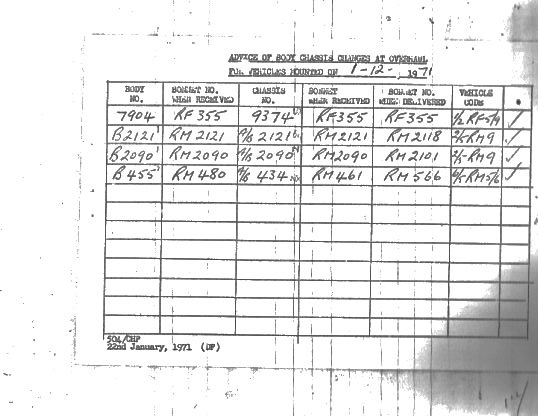 ADVICE OF BODY CHASSIS CHANGES AT OVERHAUL
FOR VEHICLES MOUNTED ON 1-12-, 1971
BODY NO. BONNET NO. WHEN RECEIVED CHASSIS NO. BONNET WHEN RECEIVED BONNET NO. WHEN DELIVERED VEHICLE CODE *
7904 RF355 9374 RF355 RF355 RF5/9 ✓
B2121 RM2121 2121 RM2121 RM2118 RM9 ✓
B2090 RM2090 2090 RM2090 RM2101 RM9 ✓
B455 RM480 434 RM461 RM566 RM5/6 ✓
504/CHP
22nd January, 1971 (DF)